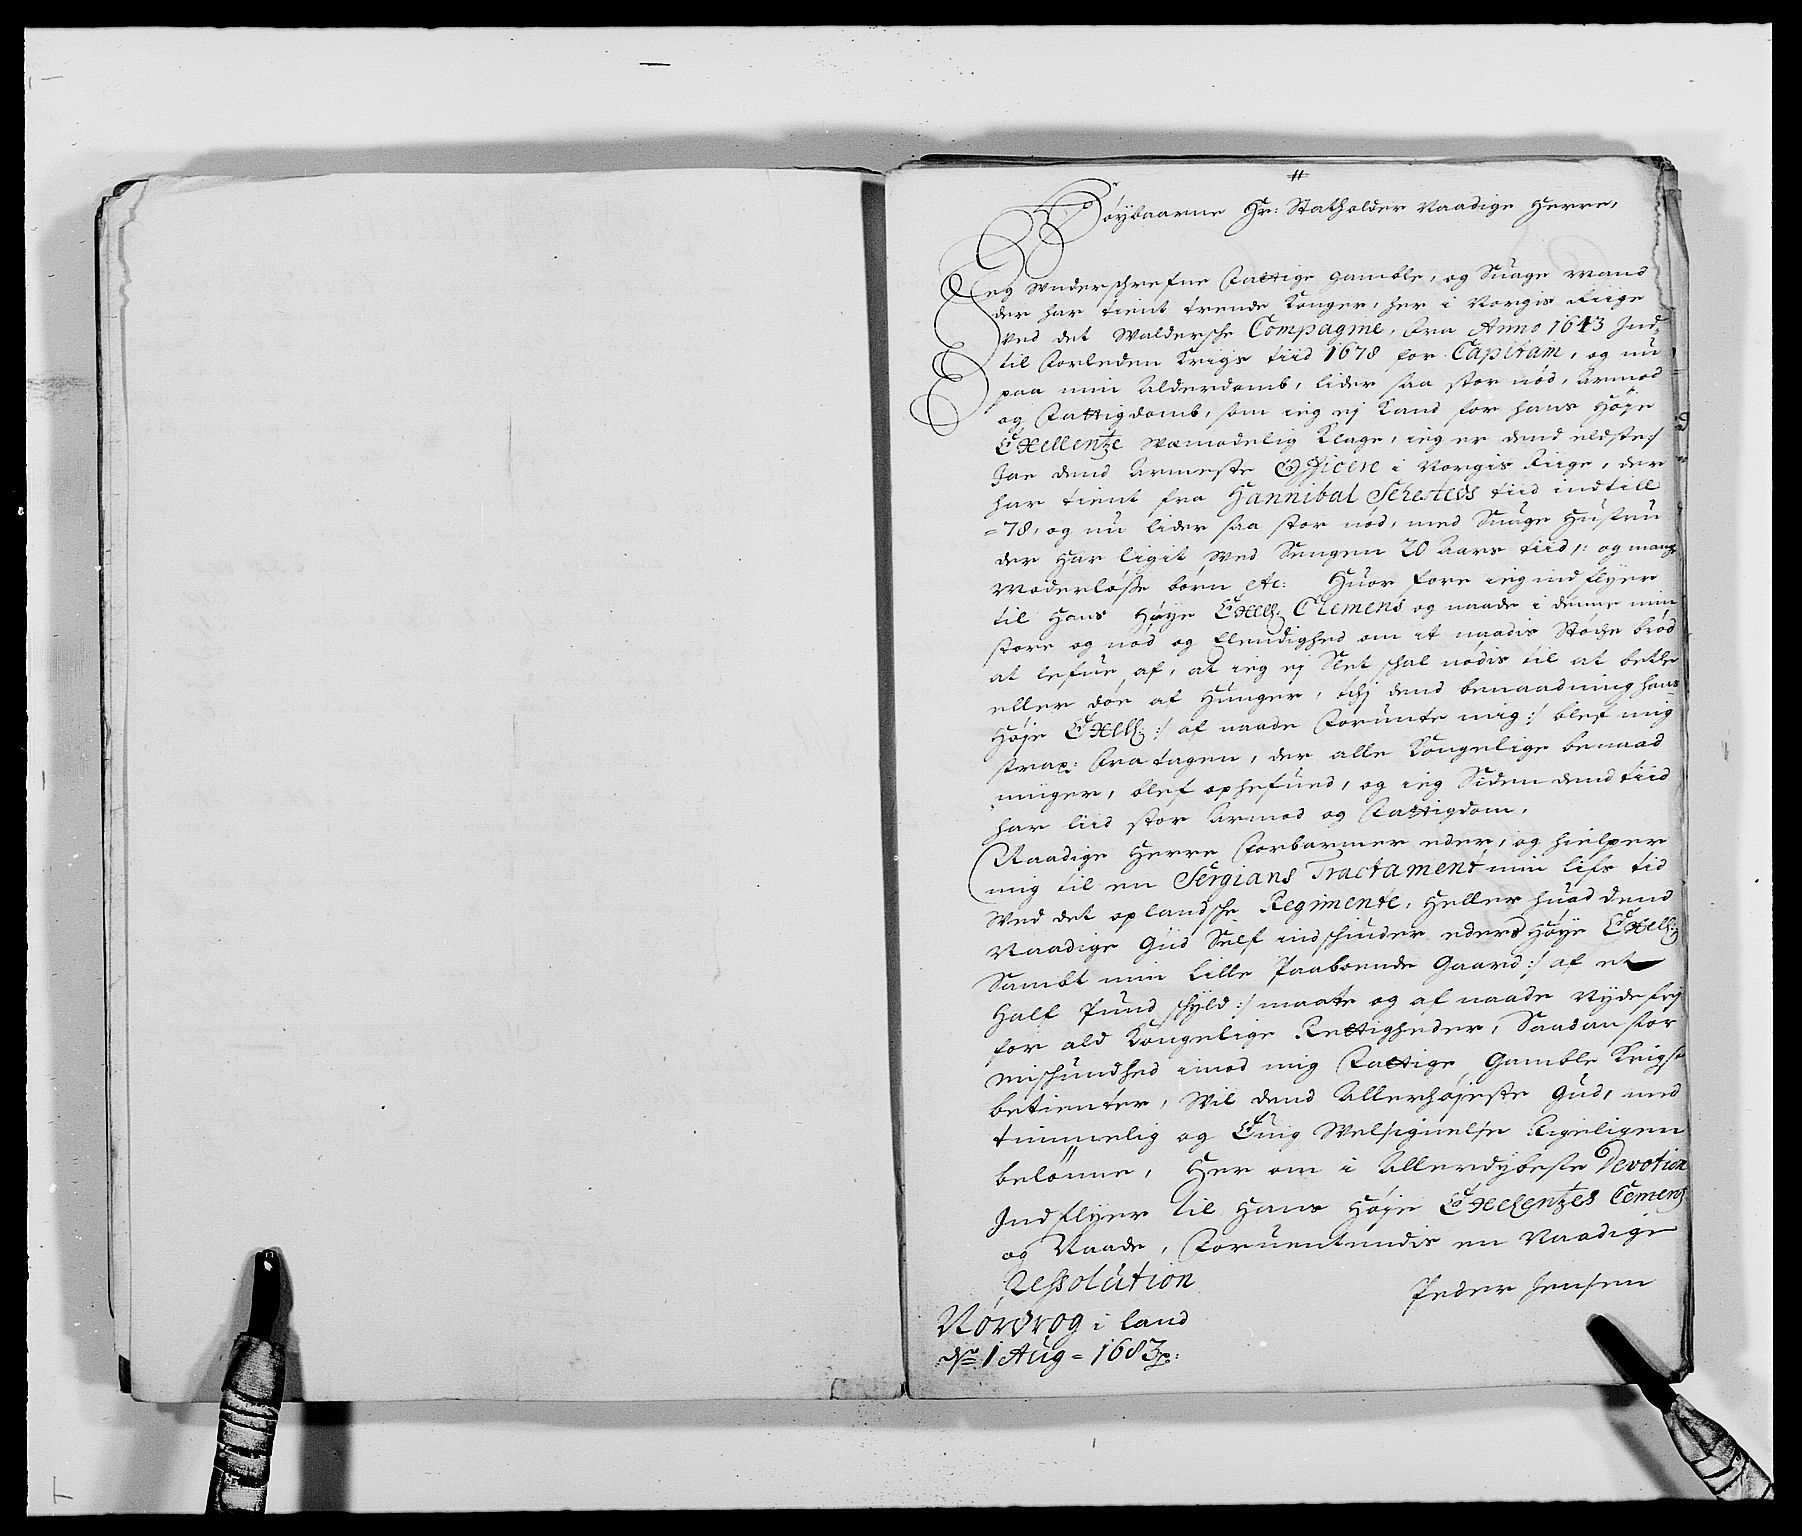 Høybaarne Hr: Statholder Naadige Herre,
Jeg underschrefne Fattige gamble, og Suage Mand
der har tient trende Konger, her i Norgis Riige
ved det Waldersche Compagnie, fra Anno 1643 Ind-
til forleden Krigs tiid 1678 for Capitain, og nu
paa min Alderdomb, lider saa stor nød, Armod
og Fattigdomb, som ieg ej Kand for hans Høje
Exellentze Wemodelig Klage, ieg er dend eldste :/
Jae dend Armeste Officere i Norgis Riige, der
har tient fra Hannibal Sehesteds tiid indtill
=78, og nu lider saa stor nød, med Suage Hustru
der har ligit Wed Sengen 20 Aars tiid, og mange
Moderløsse børn etc: Huor fore ieg indflyer
til Hans Høye Exell: Clemens og naade i denne min
store og nød og Elendighed om it naadis Støche brød
at lefue af, at ieg ej Slet schal nødis til at betle
eller døe af Hunger, thj dend benaadning hans
Høje Exell: :/ af naade forunte mig :/ blef mig
strax: fratagen, der alle Kongelige benaad
ninger, blef ophefued, og ieg Siden dend tiid
har liid stor Armod og Fattigdom,
Naadige Herre forbarmer eder, og hielper
mig til en Sergians Tractament min lifs tid
Wed det oplandsche Regimente, Heller huad dend
Naadige Gud Self indschiuder eders Høye Exell:
Sambt min lille Paaboende Gaard :/ af et
Half Pund schyld :/ maatte og af naade Nyde frj
for ald Kongelige Rettigheder, Saadan stor
mischundhed imod mig Fattige Gamble Krigs
betienter, Wil dend Allerhøjeste Gud, med
timmelig og Euig Welsignelse Rigeligen
belønne, Her om i Allerdybeste Devotion
Indflyer til Hans Høje Exelentzes Clemens
og Naade, foruentendis en Naadige
Ressolution
Peder Jensen
Nordrog i land
dn 1 Aug = 1683